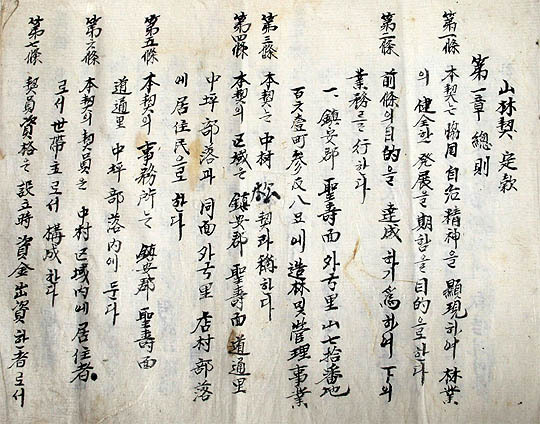 山林契 定款
第一章 總則
第一條 本契는 協同自治精神을 顯現하여 林業
의 健全한 發展을 期함을 目的으로 한다
第二條 前條의 目的을 達成하기 爲하여 下의
業務를 行한다
一. 鎭安郡 聖壽面 外弓里 山七拾番地
百 壹町參反八 에 造林 및 管理事業
第三條 本契는 中村 松契라 稱한다
第四條 本契의 區域은 鎭安郡 聖壽面 道通里
中坪部落과 同面 外弓里 店村部落
에 居住民으로 한다
第五條 本契의 事務所는 鎭安郡 聖壽面
道通里 中坪部落內에 둔다
第六條 本契의 契員은 中村區域內에 居住者
로서 世帶主로서 構成한다
第七條 契員資格은 設立時 資金出資한 者로서